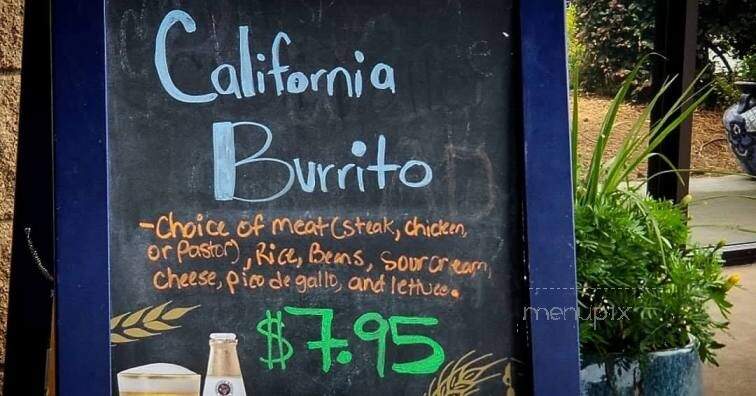 California
Burrito
-Choice of meat (steak, chicken,
or Pastor), Rice, Beans, Sour cream,
Cheese, pico de gallo, and lettuce.
$7.95
menupix